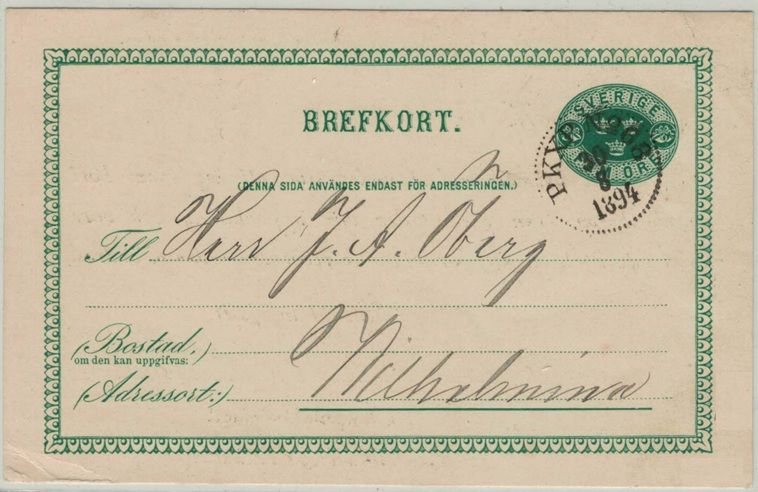 BREFKORT.
SVERIGE
FEM ÖRE
PKXP Nº
1894
(DENNA SIDA ANVÄNDES ENDAST FÖR ADRESSERINGEN.)
Till Herr J. A. Öberg
(Bostad,)
om den kan uppgifvas:
(Adressort:) Wilhelmina